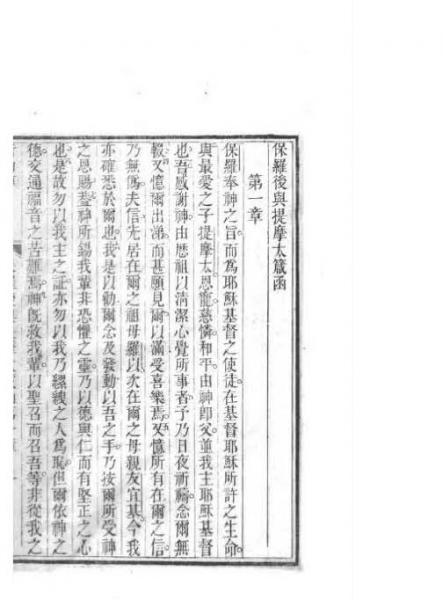 保羅後與提摩太箴函
第一章
保羅奉神之旨而為耶穌基督之使徒在基督耶穌所許之生命
與最愛之子提摩太恩寵慈憐和平由神即父並我主耶穌基督
也吾感謝神由厯祖以清潔心覺所事者予乃日夜祈禱念爾無
輟又憶爾出涕而甚願見爾以滿受喜樂焉又憶所有在爾之信
乃無偽夫信先居在爾之祖母羅以次在爾之母親友宜基今我
亦確悉於爾也我是以勸爾念及發動以吾之手乃按爾所受神
之恩賜蓋神所錫我輩非恐懼之靈乃以德與仁而有堅正之心
也是故勿以我主之証亦勿以我乃縲絏之人為恥但爾依神之
德交通福音之苦難焉神既救我輩以聖召而召吾等非從我之